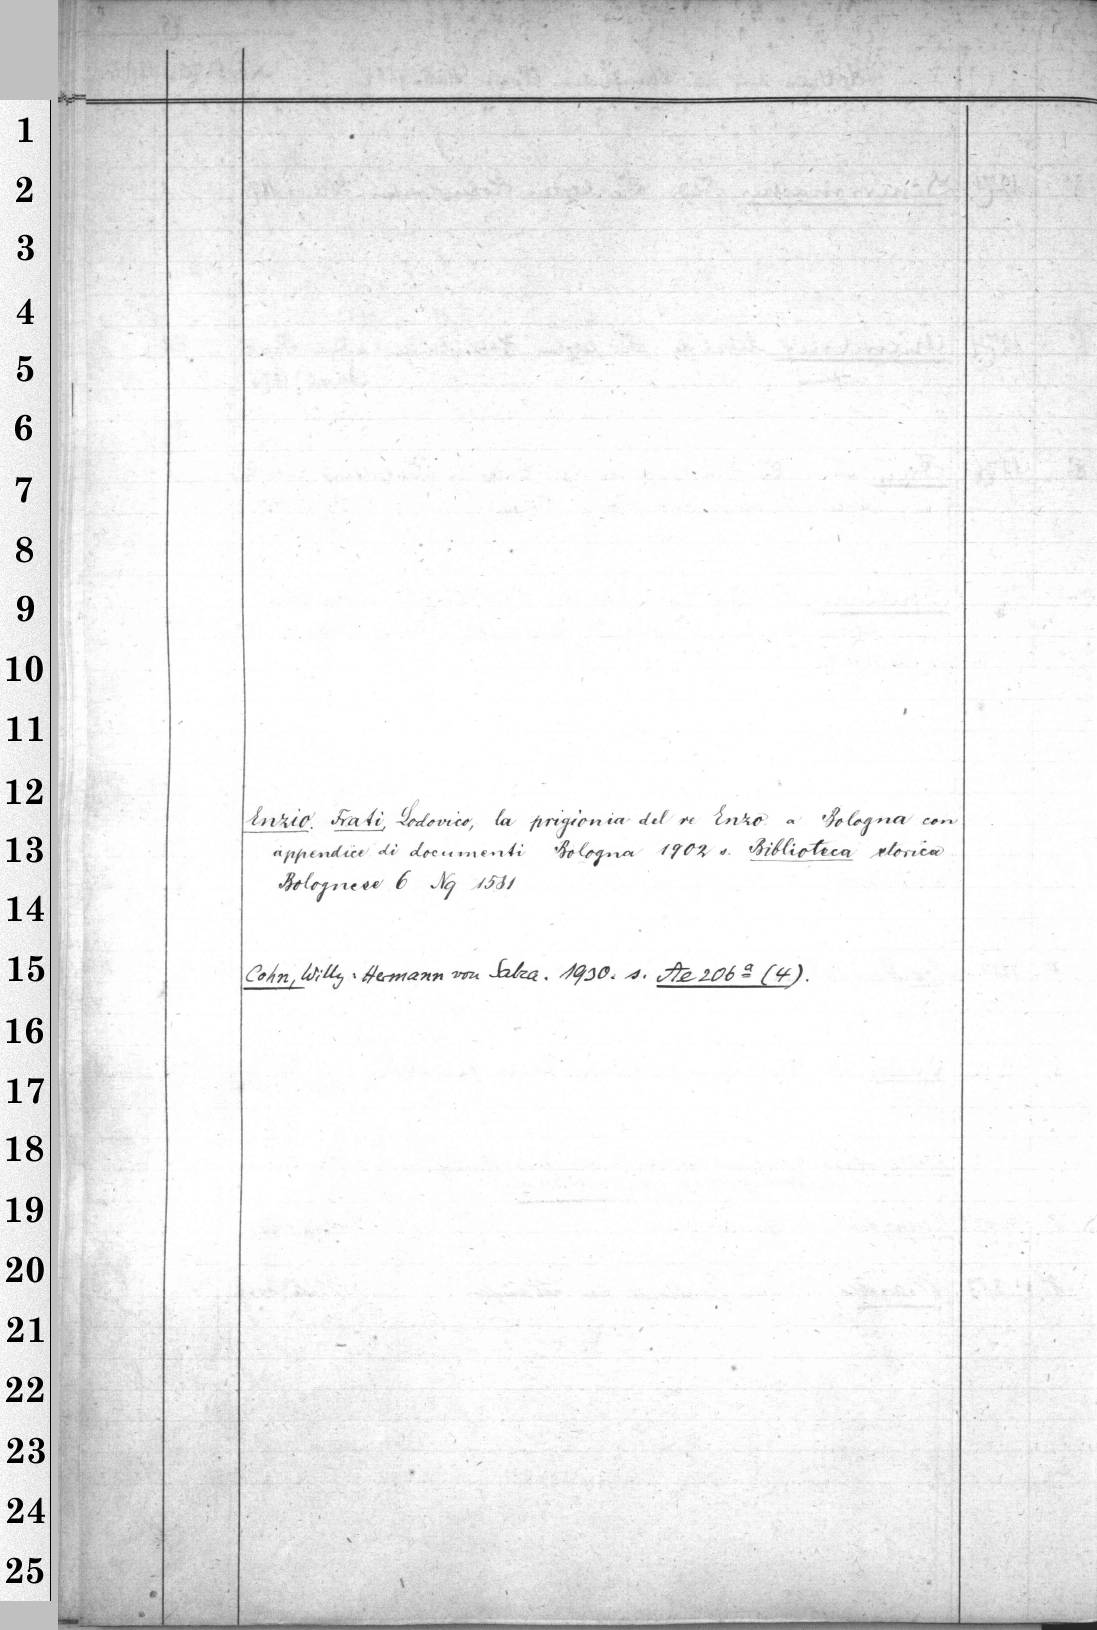 1
2
3
4
5
6
7
8
9
10
11
12
Enzio. Frati, Lodovico, la prigionia del re Enzo a Bologna con
13
appendice di documenti Bologna 1902 s. Biblioteca storica
Bolognese 6 Nq 1531
14
15
Cohn, Willy: Hermann von Salza. 1930. s. Ae 206 a (4).
16
17
18
19
20
21
22
23
24
25